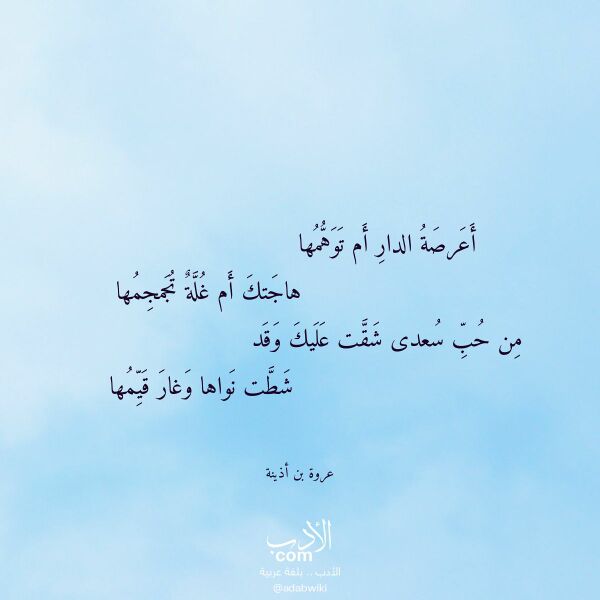 أَعَرصَةُ الدارِ أَم تَوَهُّمُها
هاجَتكَ أَم غُلَّةٌ تُجَمجِمُها
مِن حُبِّ سُعدى شَقَّت عَلَيكَ وَقَد
شَطَّت نَواها وَغارَ قَيِّمُها
عروة بن أذينة
الأدب
.com
الأدب .. بلغة عربية
@adabwiki